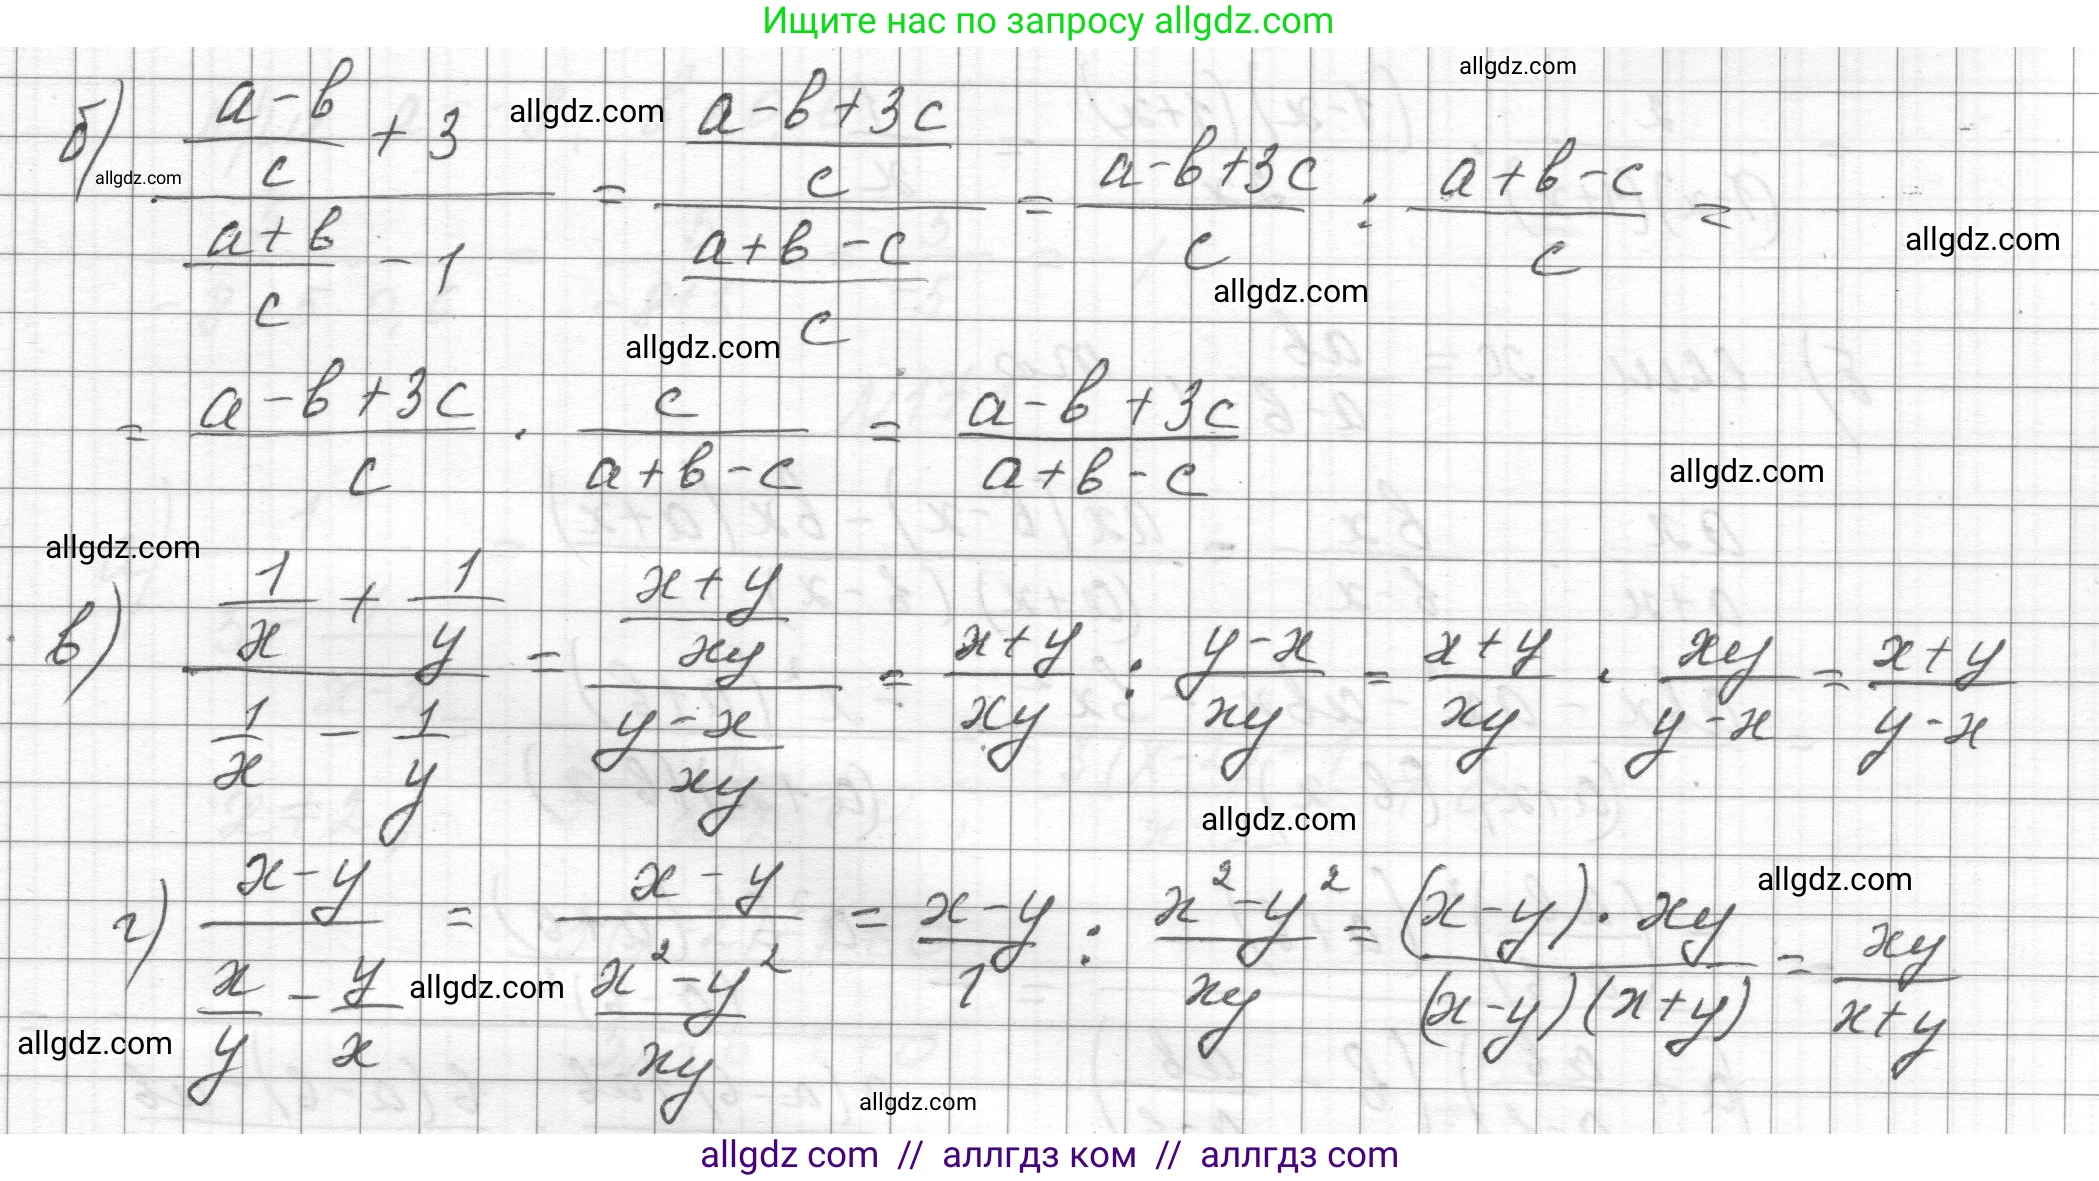 Ищите нас по запросу allgdz.com
allgdz.com
б) ((a-b)/c + 3)/((a+b)/c - 1) = ((a-b+3c)/c)/((a+b-c)/c) = (a-b+3c)/c : (a+b-c)/c =
allgdz.com
allgdz.com
allgdz.com
allgdz.com
allgdz.com
= (a-b+3c)/c · c/(a+b-c) = (a-b+3c)/(a+b-c)
allgdz.com
allgdz.com
в) (1/x + 1/y)/(1/x - 1/y) = ((x+y)/xy)/((y-x)/xy) = (x+y)/xy : (y-x)/xy = (x+y)/xy · xy/(y-x) = (x+y)/(y-x)
allgdz.com
allgdz.com
г) (x-y)/(x/y - y/x) = (x-y)/((x²-y²)/xy) = (x-y)/1 : (x²-y²)/xy = ((x-y)·xy)/((x-y)(x+y)) = xy/(x+y)
allgdz.com
allgdz.com
allgdz.com
allgdz com // аллгдз ком // аллгдз com